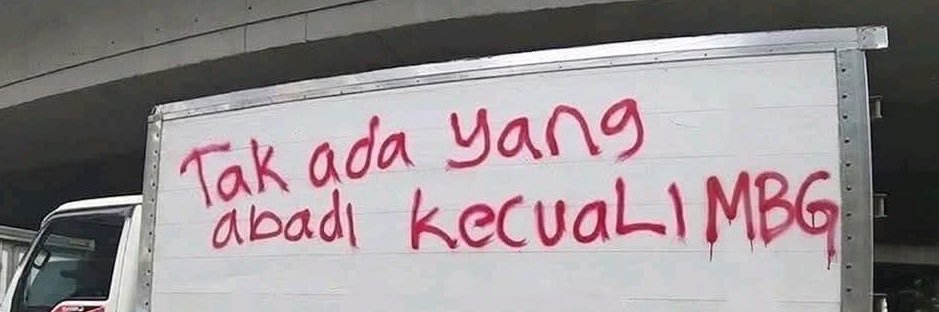 Tak ada yang
abadi kecuaLI MBG